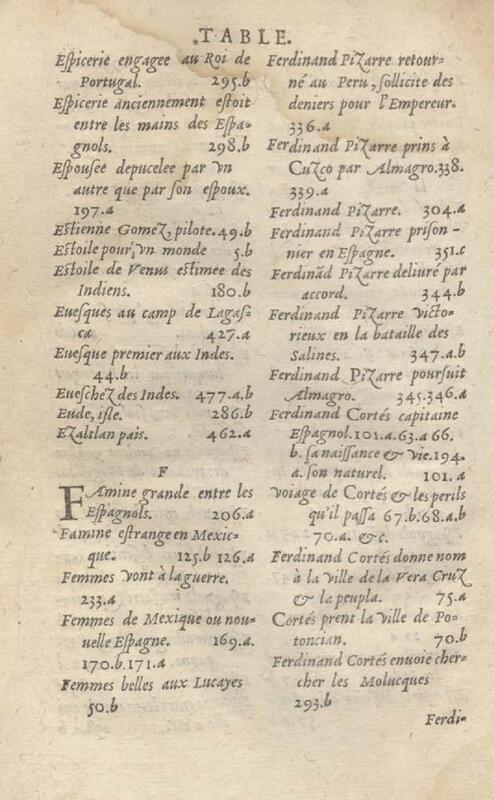 .TABLE.
Espicerie engagee au Roi de
Portugal. 295.b
Espicerie anciennement estoit
entre les mains des Espa-
gnols. 298.b
Espousee depucelee par vn
autre que par son espoux.
197.a
Estienne Gomez, pilote. 49.b
Estoile pour vn monde 5.b
Estoile de Venus estimee des
Indiens. 180.b
Euesques au camp de Lagas-
ca 427.a
Euesque premier aux Indes.
44.b
Eueschez des Indes. 477.a.b
Eude, isle. 286.b
Ezaltlan pais. 462.a
F
FAmine grande entre les
Espagnols. 206.a
Famine estrange en Mexic-
que. 125.b 126.a
Femmes vont à la guerre.
233.a
Femmes de Mexique ou nou-
uelle Espagne. 169.a.
170.b.171.a
Femmes belles aux Lucayes
50.b
Ferdinand Pizarre retour-
né au Peru, sollicite des
deniers pour l'Empereur.
336.a
Ferdinand Pizarre prins à
Cuzco par Almagro.338.
339.a
Ferdinand Pizarre. 304.a
Ferdinand Pizarre prison-
nier en Espagne. 351.c
Ferdinād Pizarre deliuré par
accord. 344.b
Ferdinand Pizarre victo-
rieux en la bataille des
Salines. 347.a.b
Ferdinand Pizarre poursuit
Almagro. 345.346.a
Ferdinand Cortés capitaine
Espagnol.101.a.63.a 66.
b. sa naissance & vie.194.
a. son naturel. 101.a
voiage de Cortés & les perils
qu'il passa 67.b.68.a.b
70.a. &c.
Ferdinand Cortés donne nom
à la ville de la Vera Cruz
& la peupla. 75.a
Cortés prent la ville de Po-
toncian. 70.b
Ferdinand Cortés enuoie cher-
cher les Molucques
293.b
Ferdi-